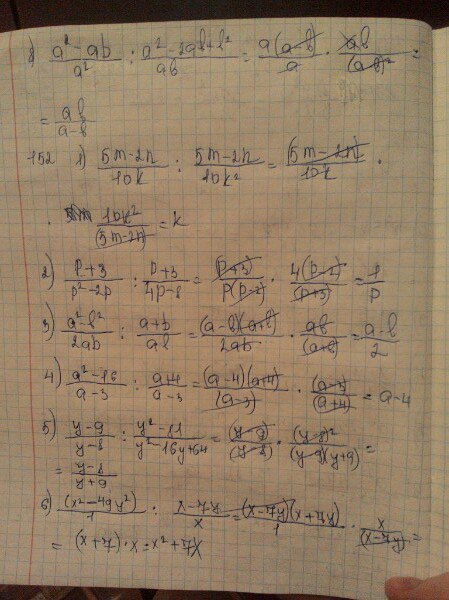 8) (a² - ab)/a² : (a² - 2ab + b²)/ab = a(a-b)/a · ab/(a-b)² =
= ab/(a-b)
152 1) (5m-2n)/10k : (5m-2n)/10k² = (5m-2n)/10k ·
· 10k²/(5m-2n) = k
2) (p+3)/(p²-2p) : (p+3)/(4p-8) = (p+3)/p(p-2) · 4(p-2)/(p+3) = 4/p
3) (a²-b²)/2ab : (a+b)/ab = (a-b)(a+b)/2ab · ab/(a+b) = (a-b)/2
4) (a²-16)/(a-3) : (a+4)/(a-3) = (a-4)(a+4)/(a-3) · (a-3)/(a+4) = a-4
5) (y-9)/(y-8) : (y²-81)/(y²-16y+64) = (y-9)/(y-8) · (y-8)²/(y-9)(y+9) =
= (y-8)/(y+9)
6) (x²-49y²)/1 : (x-7y)/x = (x-7y)(x+7y)/1 · x/(x-7y) =
= (x+7)·x = x²+7x